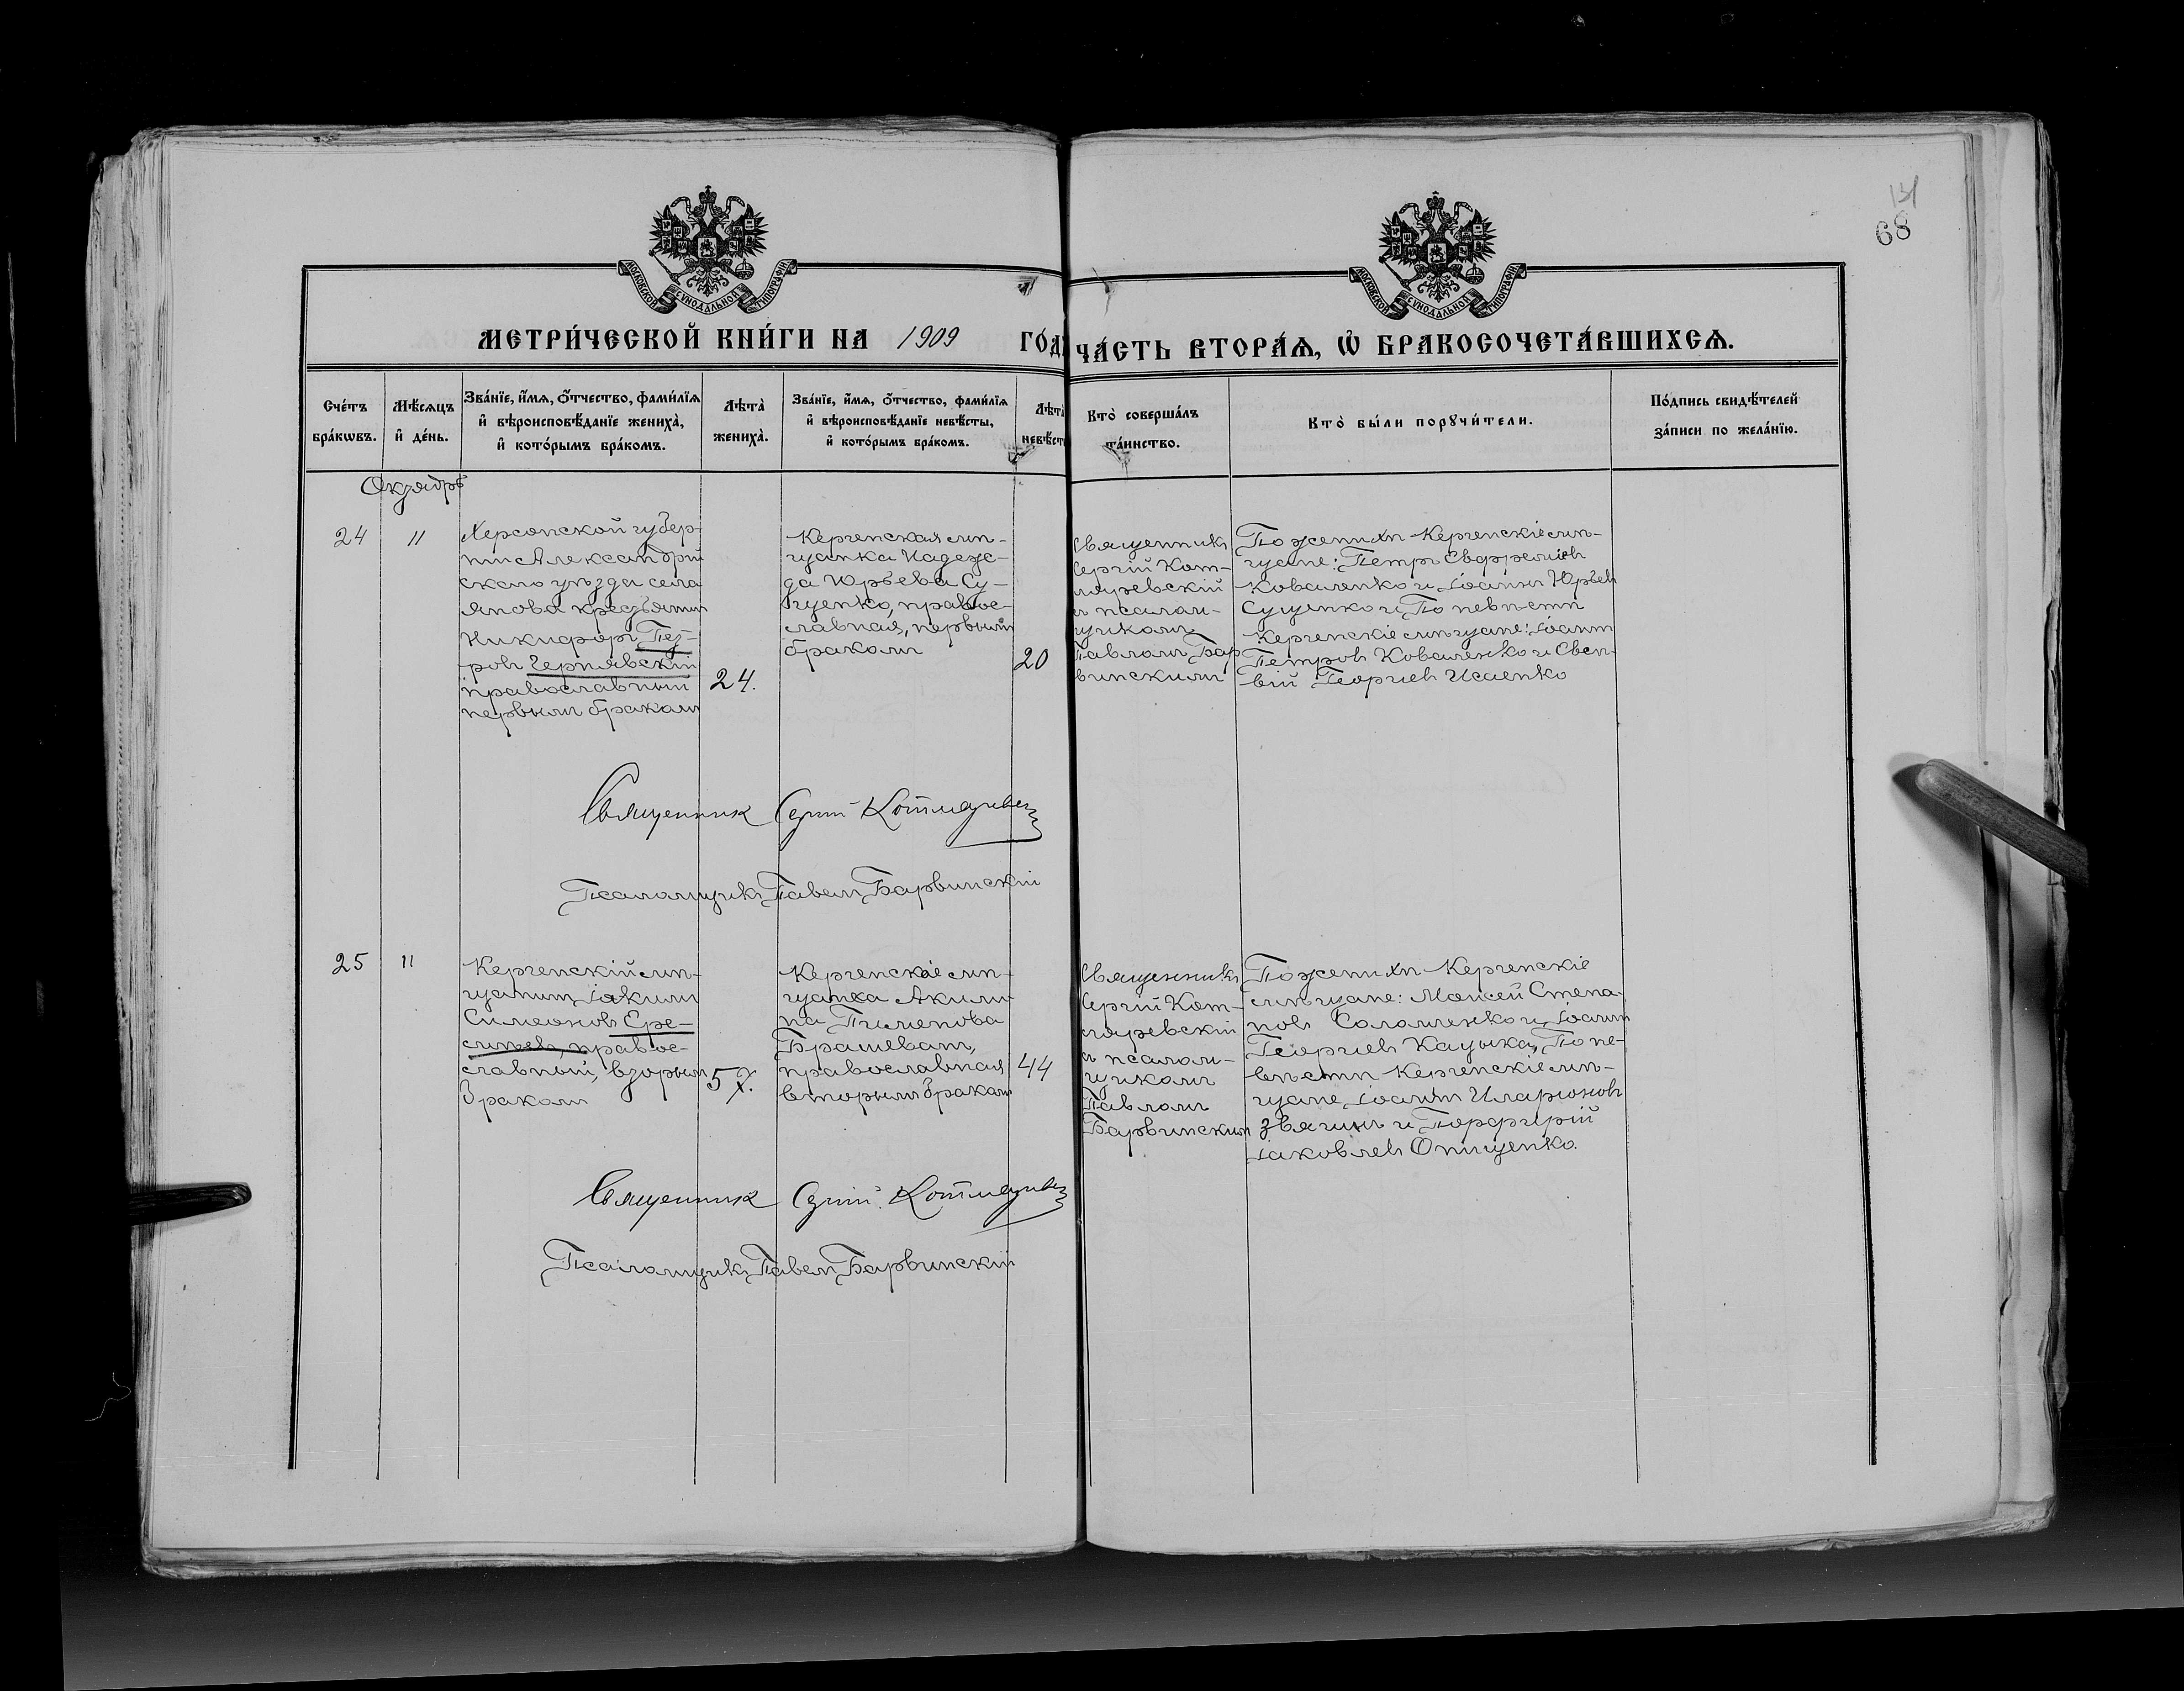 131
68
МОСКОВСКОЙ СѴНОДАЛЬНОЙ ТИПОГРАФІИ
МОСКОВСКОЙ СѴНОДАЛЬНОЙ ТИПОГРАФІИ
МЕТРИ́ЧЕСКОЙ КНИ́ГИ НА 1909 ГО́ДЪ
ЧА́СТЬ ВТОРА́Ѧ, Ѡ҆ БРАКОСОЧЕТА́ВШИХСѦ.
Сче́тъ
бра́кωвъ.
Мѣ́сѧцъ
и҆ де́нь.
Зва́нїе, и҆́мѧ, ѻ҆́тчество, фами́лїѧ
и҆ вѣроисповѣ́данїе жениха̀,
и҆ кото́рымъ бра́комъ.
Лѣта̀
жениха̀.
Зва́нїе, и҆́мѧ, ѻ҆́тчество, фами́лїѧ
и҆ вѣроисповѣ́данїе невѣ́сты,
и҆ кото́рымъ бра́комъ.
Лѣта̀
невѣ́сты
Кто̀ соверша́лъ
та́инство.
Кто̀ бы́ли порꙋчи́тели.
По́дпись свидѣ́телей
за́писи по жела́нїю.
Октябрь
24
11
Херсонской губер-
ніи Александрій
скаго уѣзда села
янова крестьянин
Никифоръ Пет-
ровъ Чернявскій
православный
первымъ бракомъ
24.
Керченская мѣ-
щанка Надеж-
да Юрьева Су-
щенко, правос-
лавная, первымъ
бракомъ
20
Священникъ
Сергій Кот-
ляревскій
съ псалом-
щикомъ
Павломъ Бар
винскимъ
По женихѣ Керченскіе мѣ-
щане: Петръ Евфремовъ
Коваленко и Іоаннъ Юрьевъ
Сущенко и По невѣстѣ
Керченскіе мѣщане: Іоаннъ
Петровъ Коваленко и Евсе-
вій Георгіевъ Исаенко
Священникъ Сергій Котляревскій
Псаломщикъ Павелъ Барвинскій
25
11
Керченскій мѣ-
щанинъ Іакимъ
Симеоновъ Ере-
мѣевъ, правос-
лавный, вторымъ
бракомъ
57.
Керченскіе мѣ-
щанка Акили-
на Пименова
Брашеванъ,
православная
вторымъ бракомъ
44
Священникъ
Сергій Кот-
ляревскій
съ псалом-
щикомъ
Павломъ
Барвинским
По женихѣ Керченскіе
мѣщане: Моисей Степа-
новъ Соломенко и Іоаннъ
Георгіевъ Кацыка, По не-
вѣстѣ Керченскіе мѣ-
щане Іоаннъ Иларіоновъ
Звягинъ и Порфирій
Іаковлевъ Онищенко.
Священникъ Сергій Котляревскій
Псаломщикъ Павелъ Барвинскій